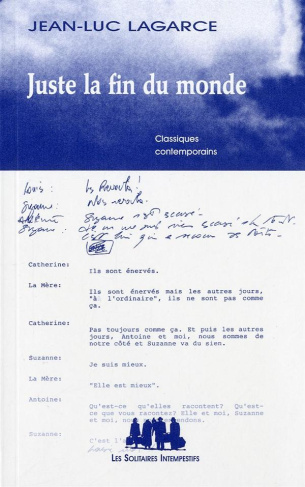 JEAN-LUC LAGARCE
Juste la fin du monde
Classiques
contemporains
Louis :
Suzanne :
Antoine :
Suzanne :
Catherine:
Ils sont énervés.
La Mère:
Ils sont énervés mais les autres jours,
"à l'ordinaire", ils ne sont pas comme
ça.
Catherine:
Pas toujours comme ça. Et puis les autres
jours, Antoine et moi, nous sommes de
notre côté et Suzanne va du sien.
Suzanne:
Je suis mieux.
La Mère:
"Elle est mieux".
Antoine:
Qu'est-ce qu'elles racontent? Qu'est-
ce que vous racontez? Elle et moi, Suzanne
et moi, nous
Suzanne:
C'est l'
LES SOLITAIRES INTEMPESTIFS